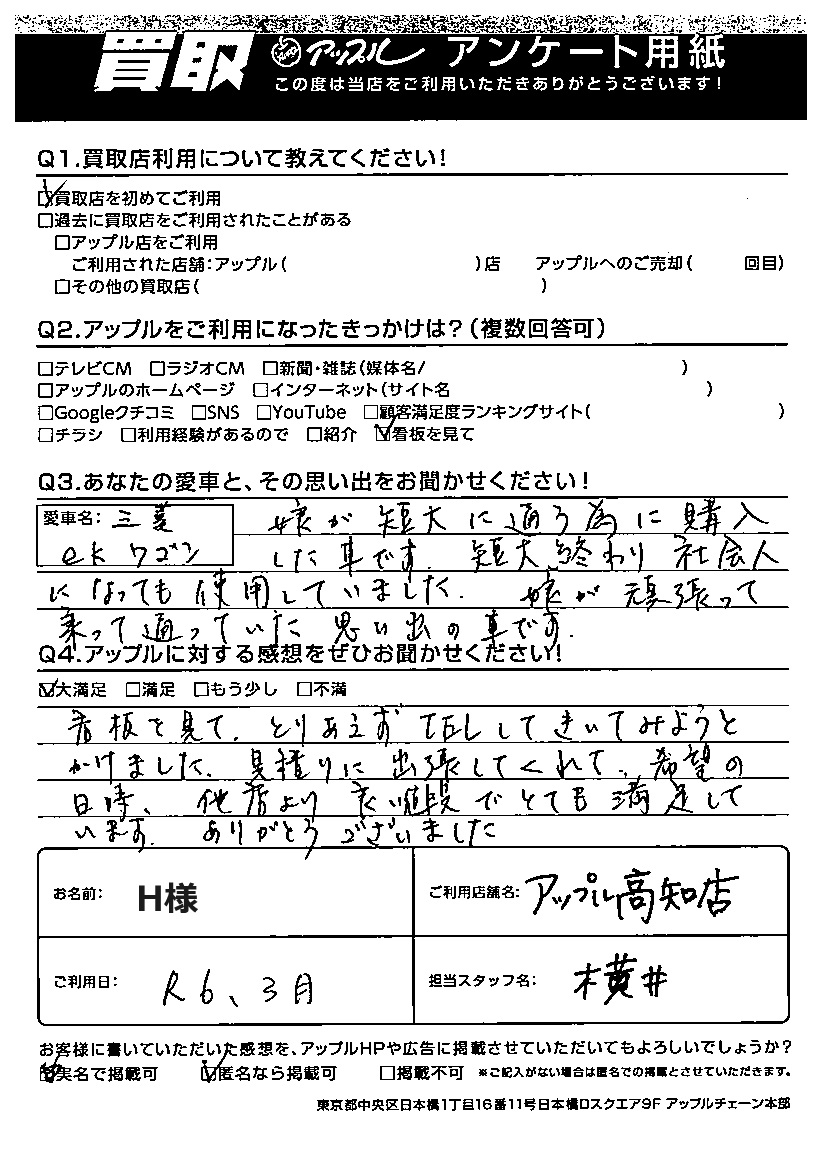 買取 アップル アンケート用紙
この度は当店をご利用いただきありがとうございます!
Q1.買取店利用について教えてください!
☑買取店を初めてご利用
□過去に買取店をご利用されたことがある
□アップル店をご利用
ご利用された店舗:アップル( )店 アップルへのご売却( 回目)
□その他の買取店( )
Q2.アップルをご利用になったきっかけは?(複数回答可)
□テレビCM □ラジオCM □新聞・雑誌(媒体名/ )
□アップルのホームページ □インターネット(サイト名 )
□Googleクチコミ □SNS □YouTube □顧客満足度ランキングサイト( )
□チラシ □利用経験があるので □紹介 ☑看板を見て
Q3.あなたの愛車と、その思い出をお聞かせください!
愛車名: 三菱 娘が短大に通う為に購入
ek ワゴン した車です。短大終わり社会人
になっても使用していました。娘が頑張って
乗って通っていた思い出の車です。
Q4.アップルに対する感想をぜひお聞かせください!
☑大満足 □満足 □もう少し □不満
看板を見て、とりあえずTELしてきいてみようと
かけました。見積りに出張してくれて、希望の
日時、他店より良い値段でとても満足して
います。ありがとうございました
お名前: H様 ご利用店舗名: アップル高知店
ご利用日: R6、3月 担当スタッフ名: 横井
お客様に書いていただいた感想を、アップルHPや広告に掲載させていただいてもよろしいでしょうか?
☑実名で掲載可 ☑匿名なら掲載可 □掲載不可 ※ご記入がない場合は匿名での掲載とさせていただきます。
東京都中央区日本橋1丁目16番11号日本橋ロスクエア9F アップルチェーン本部